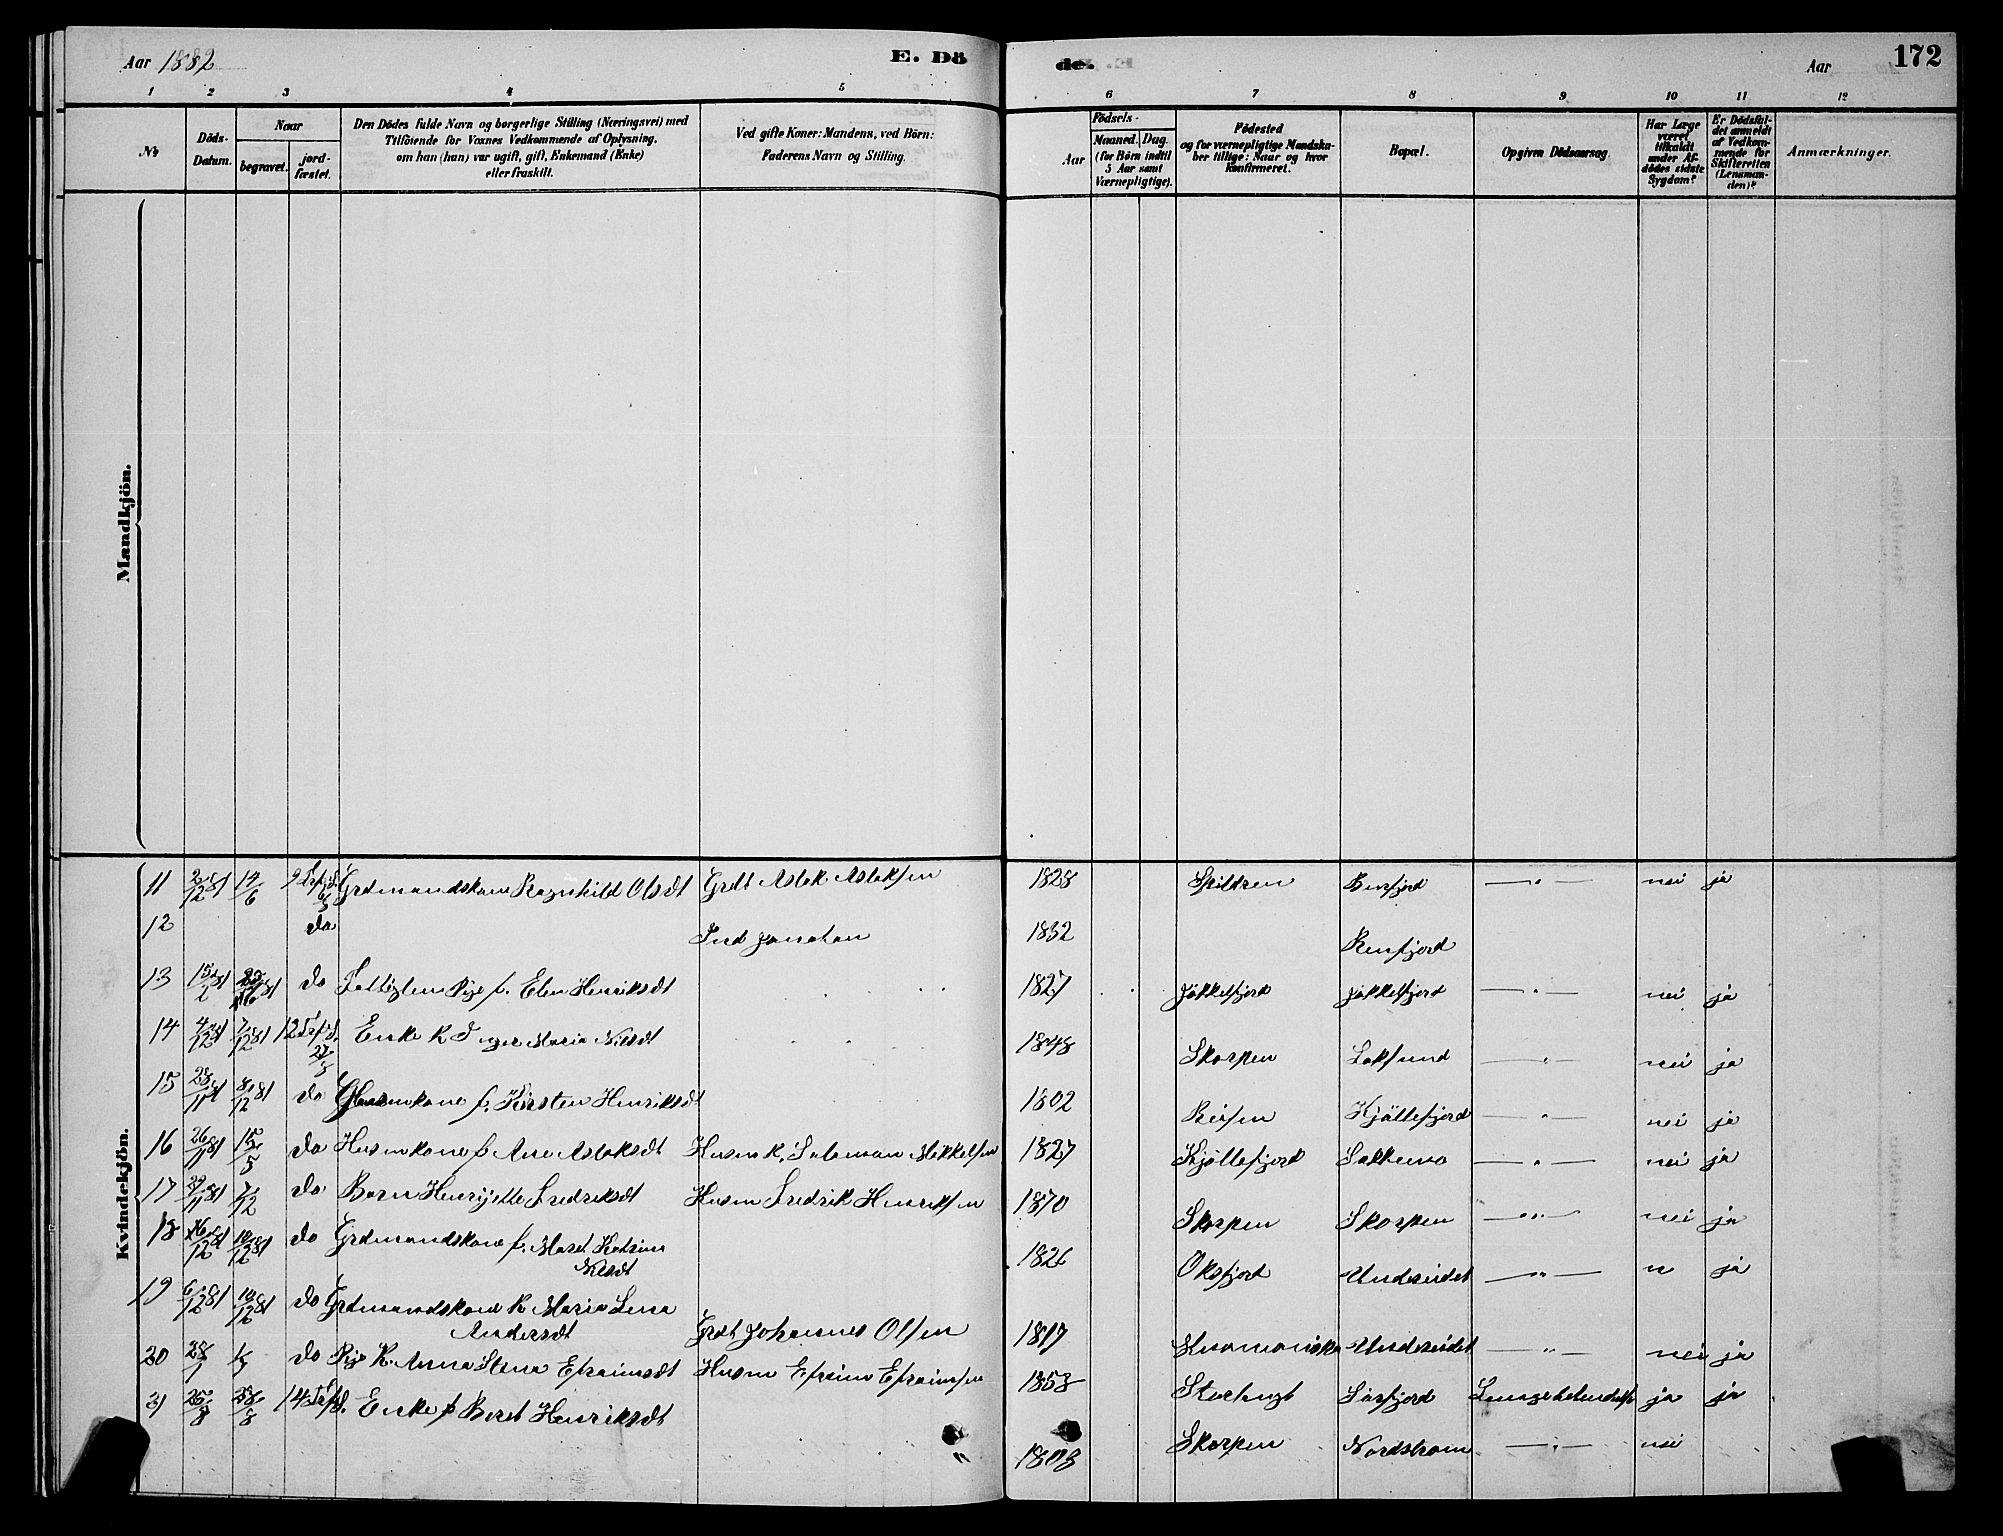 Aar 1882
E. Dö
de.
Aar
172
1 2 3 4 5 6 7 8 9 10 11 12
No
Döds-Datum.
Naar
begravet.
jord-fæstet.
Den Dödes fulde Navn og borgerlige Stilling (Næringsvei) med
Tilföiende for Voxnes Vedkommende af Oplysning,
om han (hun) var ugift, gift, Enkemand (Enke)
eller fraskilt.
Ved gifte Koner: Mandens, ved Börn:
Faderens Navn og Stilling.
Födsels-
Aar
Maaned. Dag.
(for Börn indtil
5 Aar samt
Værnepligtige).
Födested
og for værnepligtige Mandska-
ber tillige: Naar og hvor
Konfirmeret.
Bopæl.
Opgiven Dödsaarsag.
Har Læge
været
tilkaldt
under Af-
dödes sidste
Sygdom?
Er Dödsfal-
det anmeldt
af Vedkom-
mende for
Skifteretten
(Lensman-
den)?
Anmærkninger.
Mandkjön.
Kvindekjön.
11 14/6 Grdmandskone Ragnhild Olsdt Grdb Aslak Aslaksen 1828 Spildren Bursfjord —"— nei ja
12 do Ind Jonatan 1832 Reinfjord
13 do Fattiglem Pige f. Elen Henriksdt 1827 Jökkelfjord Jökkelfjord —"— nei ja
14 4/12 81 7/12 81 Enke K Inger Maria Nilsdt 1848 Skorpen Loksund —"— nei ja
15 28/11 81 8/12 81 do kone f. Kirsten Henriksdt 1802 Reisen Kjöllefjord —"— nei ja
16 26/11 81 15/5 do Husmkone f. Ane Aslaksdt Husm K. Salamon Mikkelsen 1827 Kjöllefjord —"— nei ja
17 7/12 do Barn Henrijette Fredriksdt Husm Fredrik Henriksen 1870 Skorpen Skorpen —"— nei ja
18 10/12 81 do Grdmandskone f. Maret Katrina
Nilsdt
1826 Oksfjord Undereidet —"— n ja
19 6/12 81 10/12 81 do Grdmandskone K. Maria Lena
Andersdt Grdb Johannes Olsen 1817 Undereidet —"— nei ja
20 28/1 do Pige K. Anna Stina Efraimsdt Husm Efraim Efraimsen 1853 Sörfjord ja ja
21 25/8 28/8 Enke f Beret Henriksdt 1803 Skorpen Nordstrom —"— nei